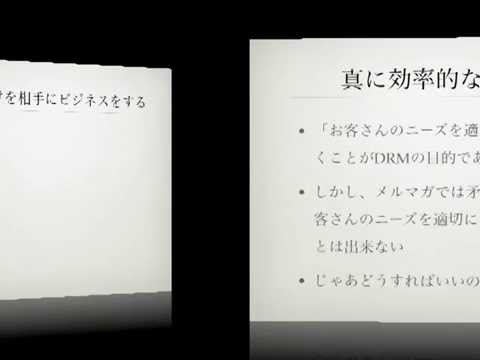 けを相手にビジネスをする
真に効率的な
• 「お客さんのニーズを適
くことがDRMの目的であ
• しかし、メルマガでは矛
客さんのニーズを適切に
とは出来ない
• じゃあどうすればいいの